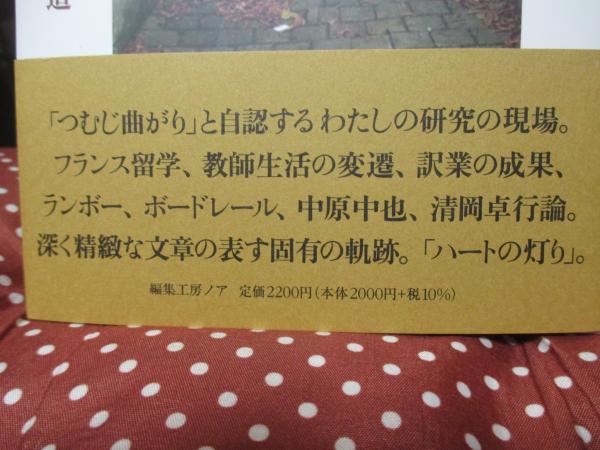 道
「つむじ曲がり」と自認するわたしの研究の現場。
フランス留学、教師生活の変遷、訳業の成果、
ランボー、ボードレール、中原中也、清岡卓行論。
深く精緻な文章の表す固有の軌跡。「ハートの灯り」。
編集工房ノア 定価2200円(本体2000円+税10%)